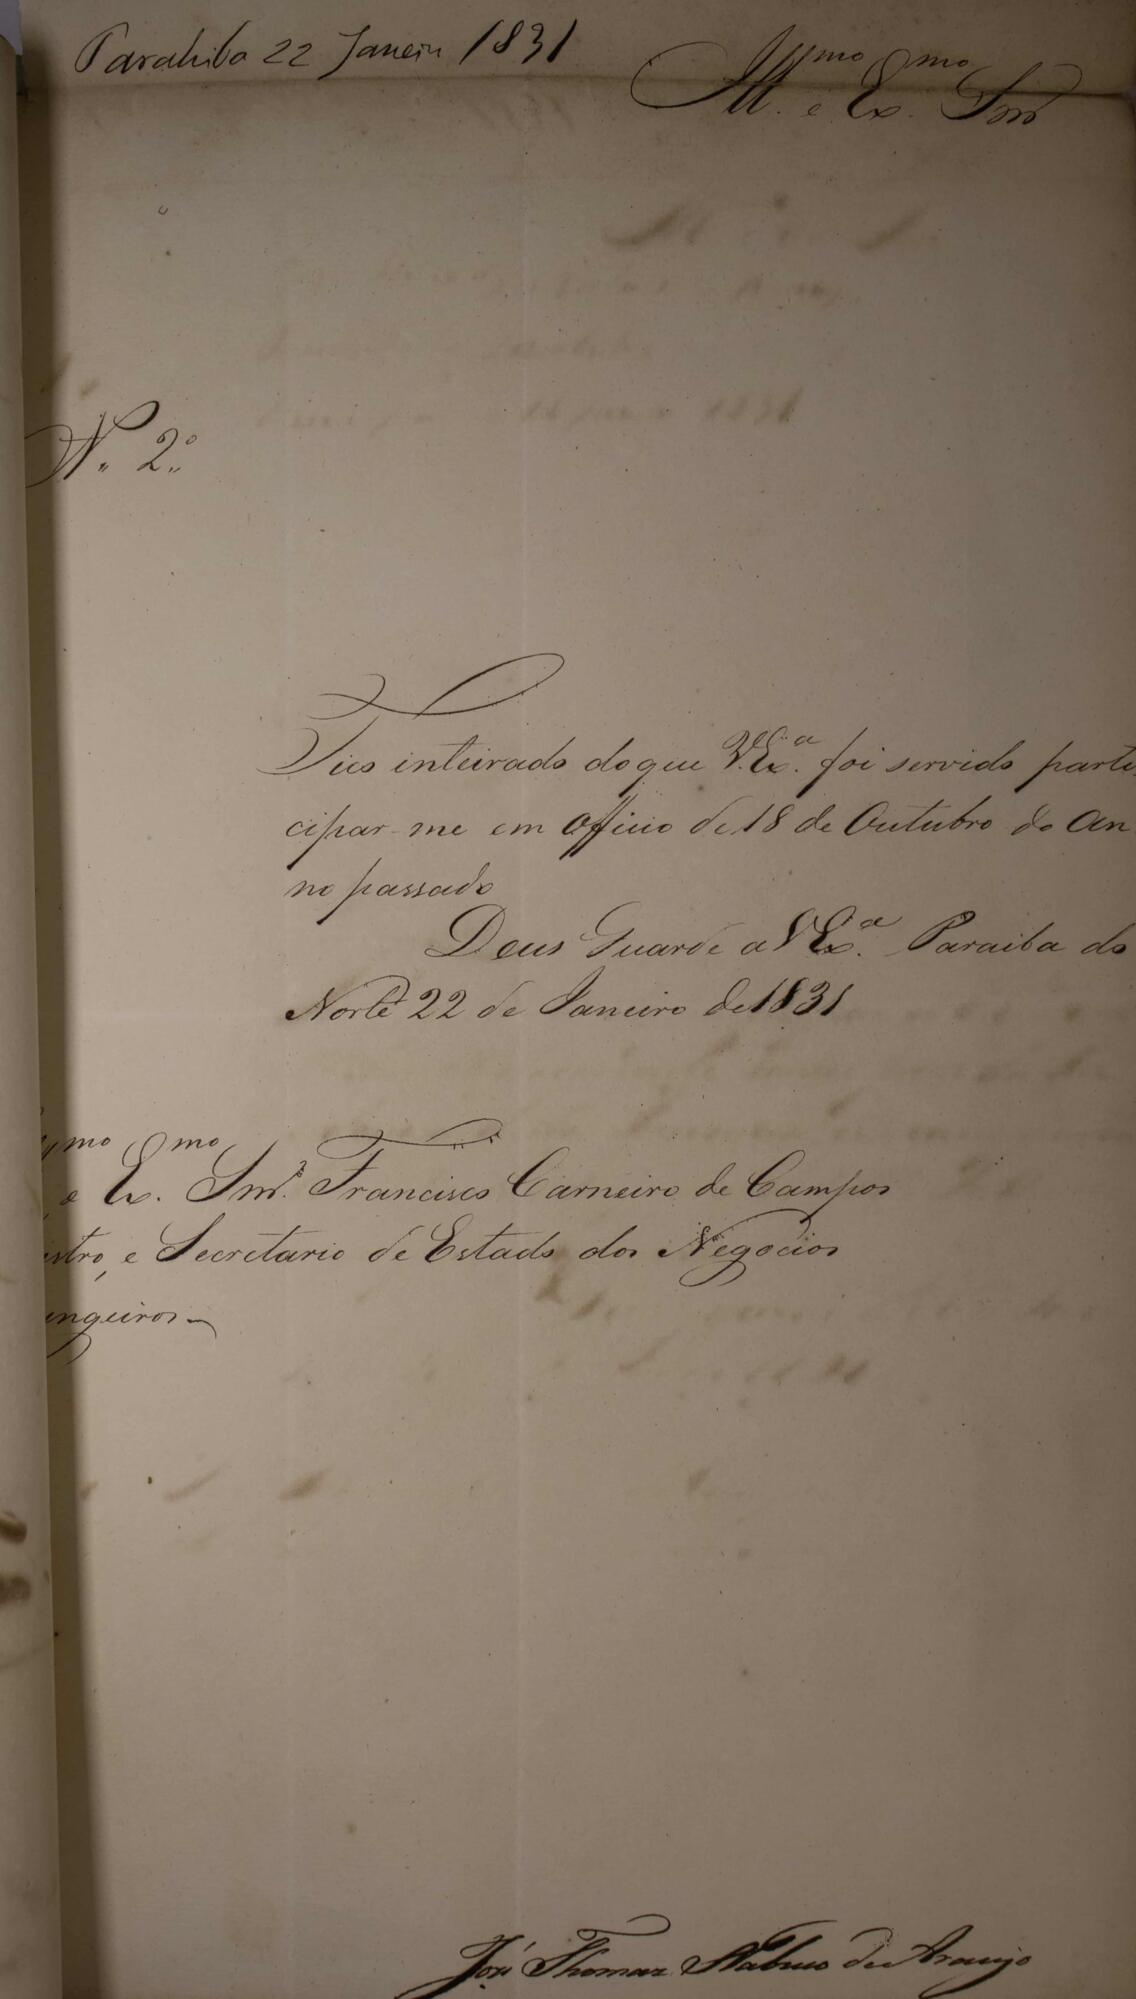 Parahiba 22 Janeiro 1831
Ill.mo e Ex.mo Snr
N.o 2.o
Fico inteirado do que V.Ex.a foi servido parti
cipar-me em Officio de 18 de Outubro do An
no passado
Deus Guarde a V Ex.a Paraiba do
Norte 22 de Janeiro de 1831
mo e Ex.mo Snr. Francisco Carneiro de Campos
istro, e Secretario de Estado dos Negocios
angeiros.
José Thomaz Nabuco de Araujo